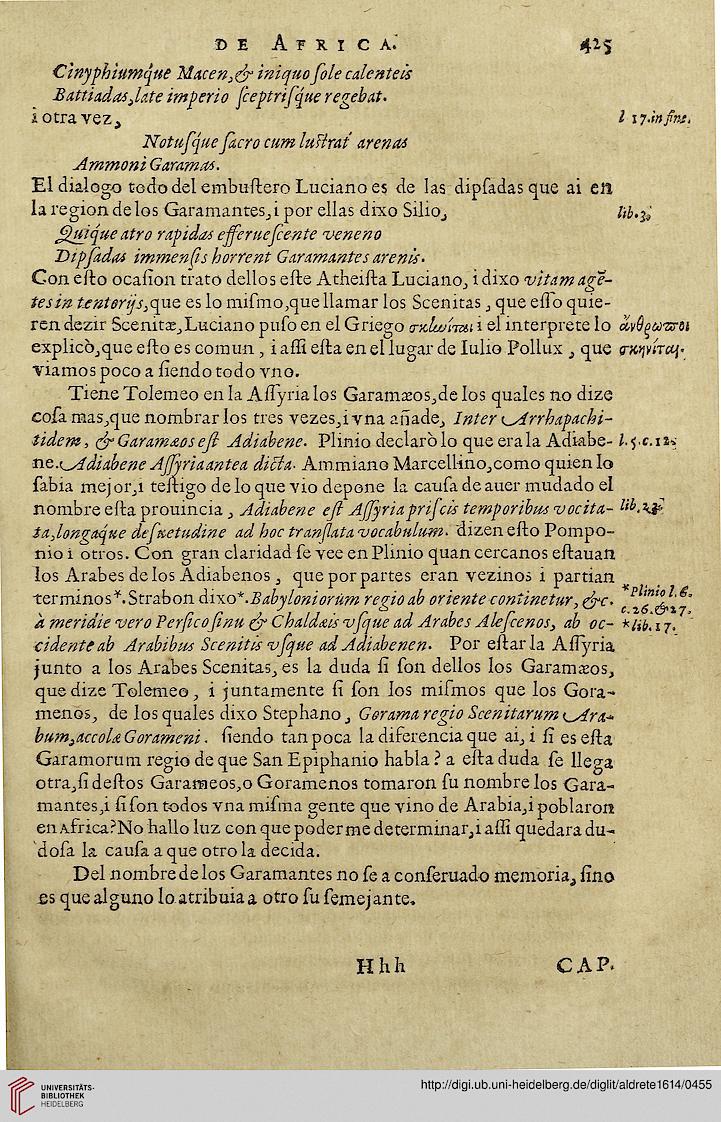 DE AFRICA. 425
Cinyphiumque Macen,& iniquo ſole calenteis
Battiadas,late imperio ſceptriſque regebat.
i otra vez, l 17.in fine.
Notuſque ſacro cum luſtrat arenas
Ammoni Garamas.
El dialogo todo del embuſtero Luciano es de las dipſadas que ai en
la region de los Garamantes,i por ellas dixo Silio, lib.3.
Quique atro rapidas efferueſcente veneno
Dipſadas immenſis horrent Garamantes arenis.
Con eſto ocaſion trato dellos eſte Atheiſta Luciano, i dixo vitam agē-
tes in tentorijs,que es lo miſmo,que llamar los Scenitas, que eſſo quie-
ren dezir Scenitæ,Luciano puſo en el Griego σκηνίται i el interprete lo ἄνθρωποι
explicò,que eſto es comun, i aſſi eſta en el lugar de Iulio Pollux, que σκηνίται.
viamos poco a ſiendo todo vno.
Tiene Tolemeo en la Aſſyria los Garamæos,de los quales no dize
coſa mas,que nombrar los tres vezes,i vna añade, Inter Arrhapachi-
tidem, & Garamæos eſt Adiabene. Plinio declarò lo que era la Adiabe- l.5.c.12.
ne. Adiabene Aſſyria antea dicta. Ammiano Marcellino,como quien lo
ſabia mejor,i teſtigo de lo que vio depone la cauſa de auer mudado el
nombre eſta prouincia, Adiabene eſt Aſſyria priſcis temporibus vocita- lib.23.
ta,longaque deſuetudine ad hoc tranſlata vocabulum. dizen eſto Pompo-
nio i otros. Con gran claridad ſe vee en Plinio quan cercanos eſtauan
los Arabes de los Adiabenos, que por partes eran vezinos i partian
terminos*. Strabon dixo*. Babyloniorum regio ab oriente continetur, &c. *Plinio l.6. c.26.&27.
à meridie vero Perſico ſinu & Chaldæis vſque ad Arabes Aleſcenos, ab oc- *lib.17.
cidente ab Arabibus Scenitis vſque ad Adiabenen. Por eſtar la Aſſyria
junto a los Arabes Scenitas, es la duda ſi ſon dellos los Garamæos,
que dize Tolemeo, i juntamente ſi ſon los miſmos que los Gora-
menos, de los quales dixo Stephano, Gorama regio Scenitarum Ara-
bum,accolæ Gorameni. ſiendo tan poca la diferencia que ai, i ſi es eſta
Garamorum regio de que San Epiphanio habla? a eſta duda ſe llega
otra,ſi deſtos Garameos,o Goramenos tomaron ſu nombre los Gara-
mantes,i ſi ſon todos vna miſma gente que vino de Arabia,i poblaron
en Africa?No hallo luz con que poder me determinar,i aſſi quedara du-
doſa la cauſa a que otro la decida.
Del nombre de los Garamantes no ſe a conſeruado memoria, ſino
es que alguno lo atribuia a otro ſu ſemejante.
Hhh CAP.
UNIVERSITÄTS-
BIBLIOTHEK
HEIDELBERG
http://digi.ub.uni-heidelberg.de/diglit/aldrete1614/0455